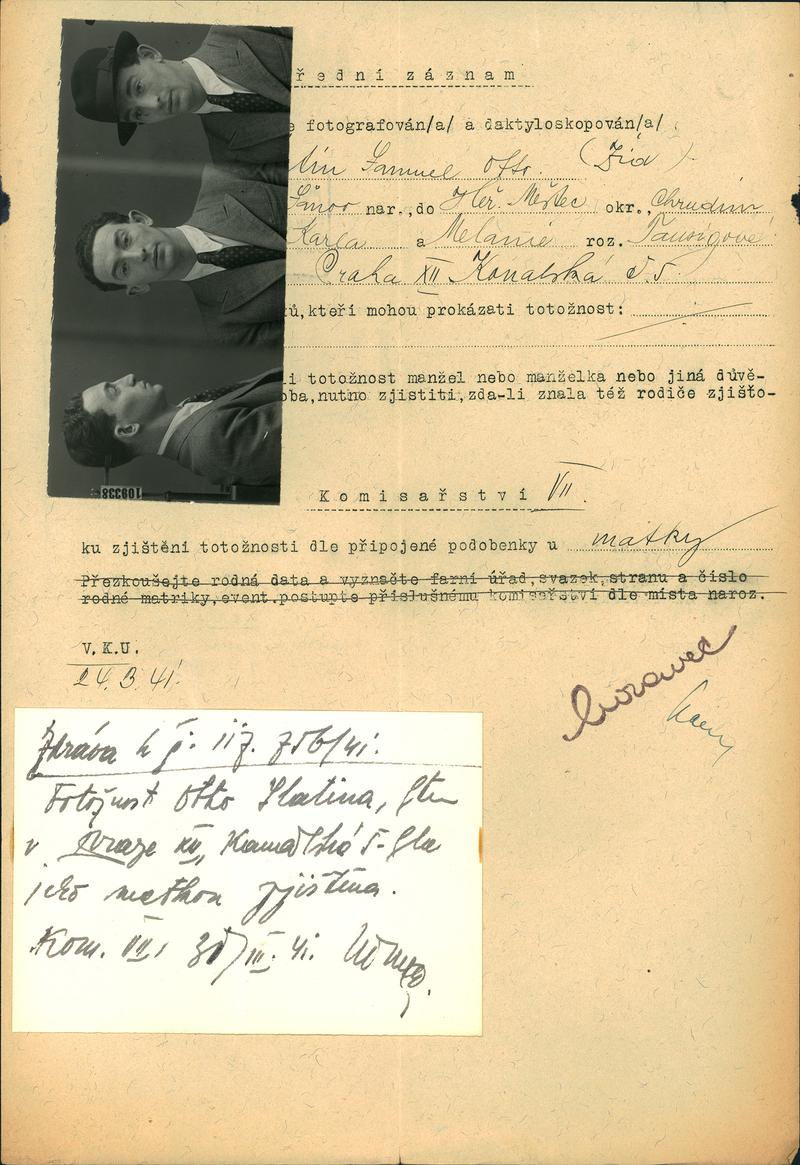 řední záznam
fotografován/a/ a daktyloskopován/a/
Samuel Otto. (Žid)
nar., do Heř. Městec okr., Chrudim
Karla a Melanie roz. Tausigové
Praha XII
ů, kteří mohou prokázati totožnost:
li totožnost manžel nebo manželka nebo jiná důvě-
oba, nutno zjistiti, zda-li znala též rodiče zjišťo-
109338
Komisařství VII.
ku zjištění totožnosti dle připojené podobenky u matky
Přezkoušejte rodná data a vyznačte farní úřad, svazek, stranu a číslo
rodné matriky, event. postupte příslušnému komisařství dle místa naroz.
V.K.U.
24.3.41.
Zpráva k č. j. 756/41.
Totožnost Otto
v Praze XII,
jeho matkou zjištěna.
Kom. VII, III. 41.